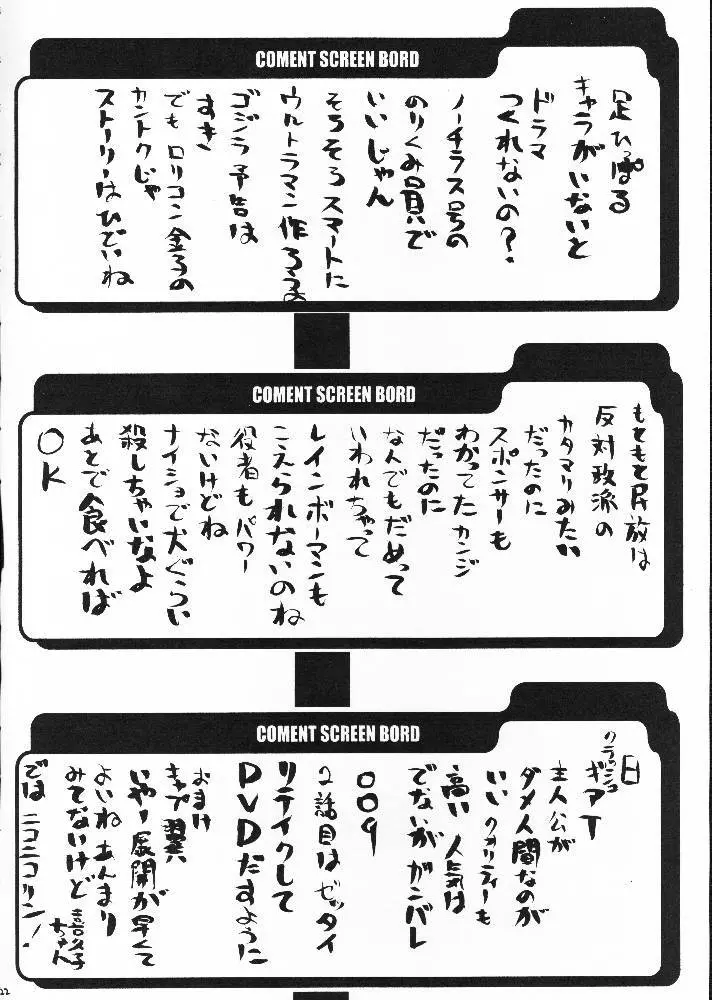 COMENT SCREEN BORD
足ひっぱる
キャラがいないと
ドラマ
つくれないの?
ノーチラス号の
のりくみ員で
いいじゃん
そろそろスマートに
ウルトラマン作ろうよ
ゴジラ予告は
すき、
でもロリコン金子の
カントクじゃ
ストーリーはひどいね
COMENT SCREEN BORD
もともと民放は
反対政派の
カタマリみたい
だったのに
スポンサーも
わかってたカンジ
だったのに
なんでもだめって
いわれちゃって
レインボーマンも
こえられないのね
役者もパワー
ないけどね
ナイショで犬ぐらい
殺しちゃいなよ
あとで食べれば
OK
COMENT SCREEN BORD
日
クラッシュ
ギアT
主人公が
ダメ人間なのが
いい クオリティーも
高い 人気は
でないが ガンバレ
009
2話目はゼッタイ
リテイクして
DVDだすように
おまけ
キャプ翼
いやー展開が早くて
よいね あんまり
みてないけど 喜久子ちゃん
では ニコニコリン!
22